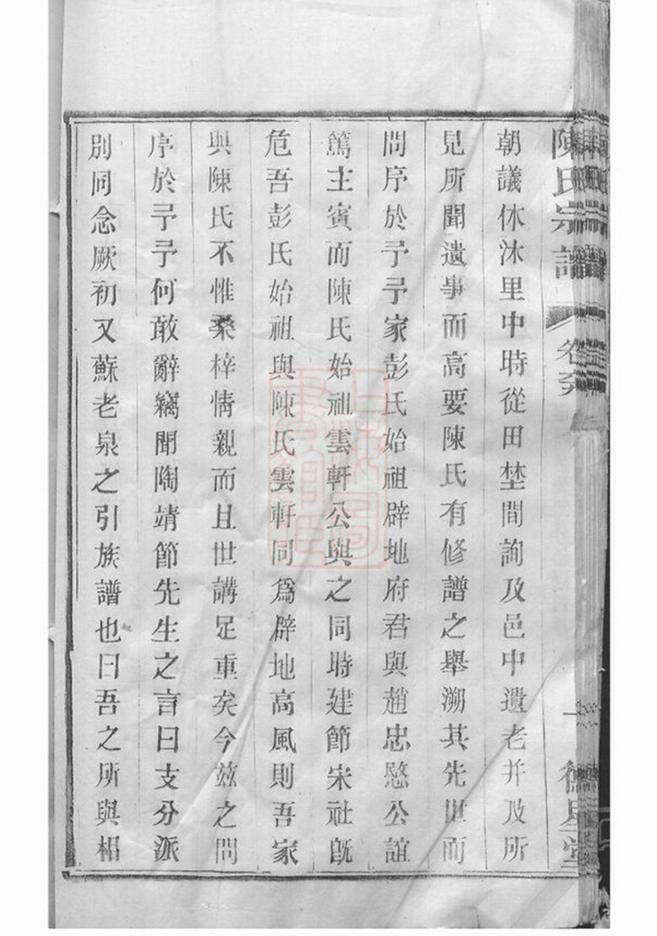 陳氏宗譜 卷六 一 德星堂
朝議休沐里中時從田埜間詢及邑中遺老幷及所
見所聞遺事而高要陳氏有修譜之舉溯其先世而
問序於予予家彭氏始祖辟地府君與趙忠愍公誼
篤主賓而陳氏始祖雲軒公與之同時建節宋社旣
危吾彭氏始祖與陳氏雲軒同爲辟地高風則吾家
與陳氏不惟桑梓情親而且世講足重矣今兹之問
序於予予何敢辭竊聞陶靖節先生之言曰支分派
別同念厥初又蘇老泉之引族譜也曰吾之所與相